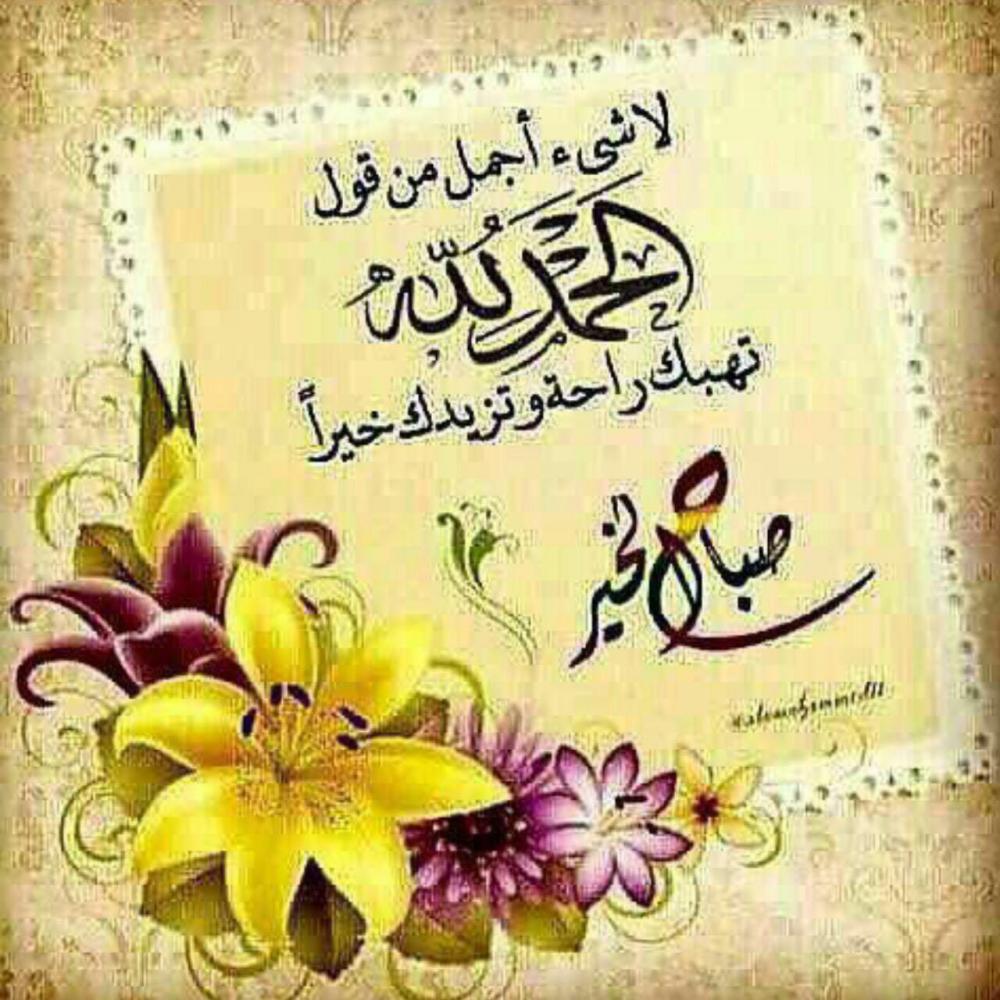 لاشىء أجمل من قول
الحمد لله
تهبك راحة وتزيدك خيراً
صباح الخير